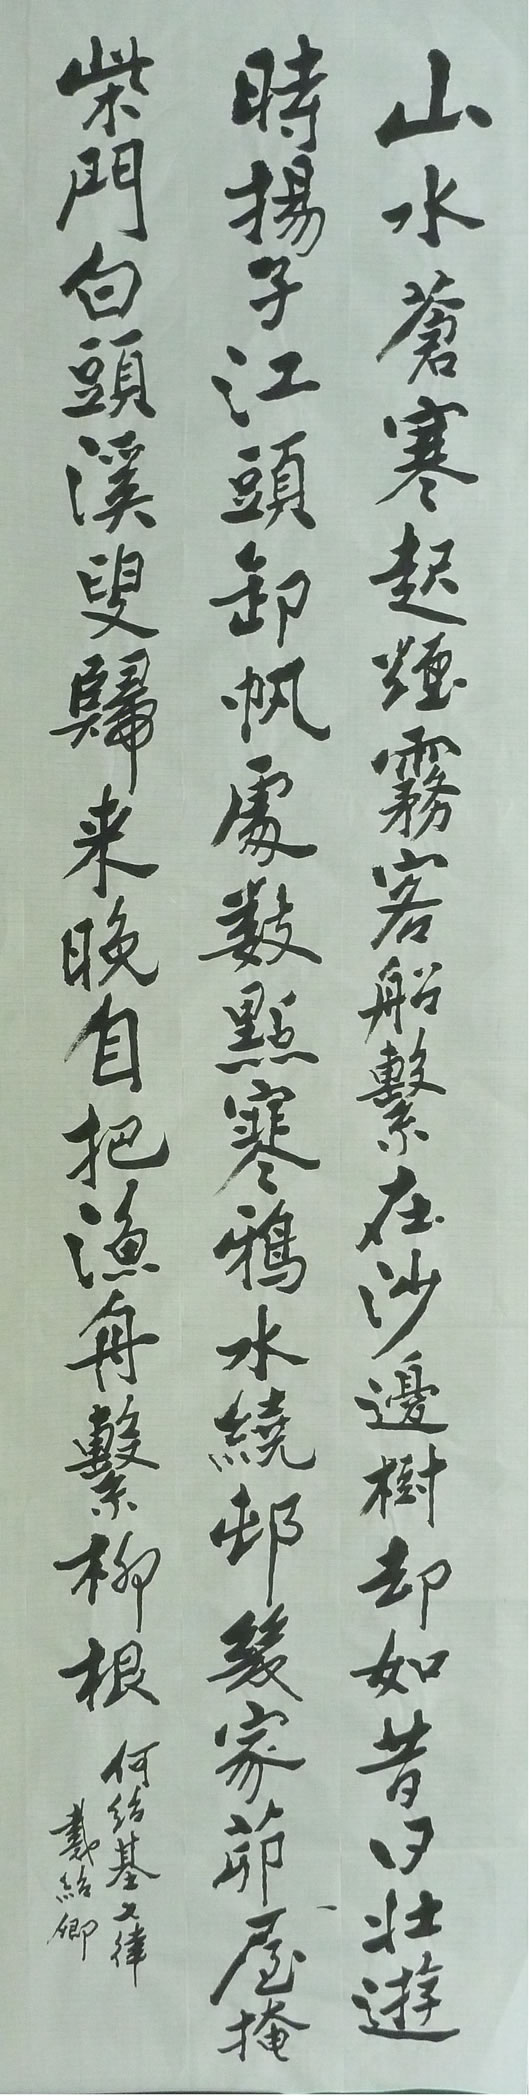 山水蒼寒起煙霧客船繫在沙邊樹却如昔日壯遊
時揚子江頭卸帆處數點寒鴉水繞邨幾家茆屋掩
柴門白頭溪叟歸来晚自把漁舟繫柳根
何紹基七律
戴紹卿